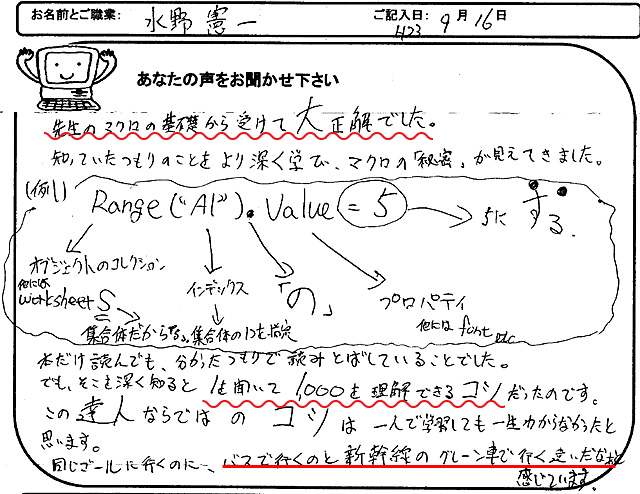 お名前とご職業: 水野 憲一 ご記入日: H23 9月16日
あなたの声をお聞かせ下さい
先生のマクロの基礎から受けて大正解でした。
知っていたつもりのことをより深く学び、マクロの「秘密」が見えてきました。
(例1)
Range("A1").Value = 5 → 5にする.
オブジェクトのコレクション
他には
worksheetS
インデックス
「の」
プロパティ
他には font etc
集合体だからな。集合体の1つを指定
本だけ読んでも、分かったつもりで読みとばしていることでした。
でも、そこを深く知ると1を聞いて1,000を理解できるコツだったのです。
この達人ならではのコツは一人で学習しても一生わからなかったと
思います。
同じゴールに行くのに、バスで行くのと新幹線のグリーン車で行く違いだなと
感じています。